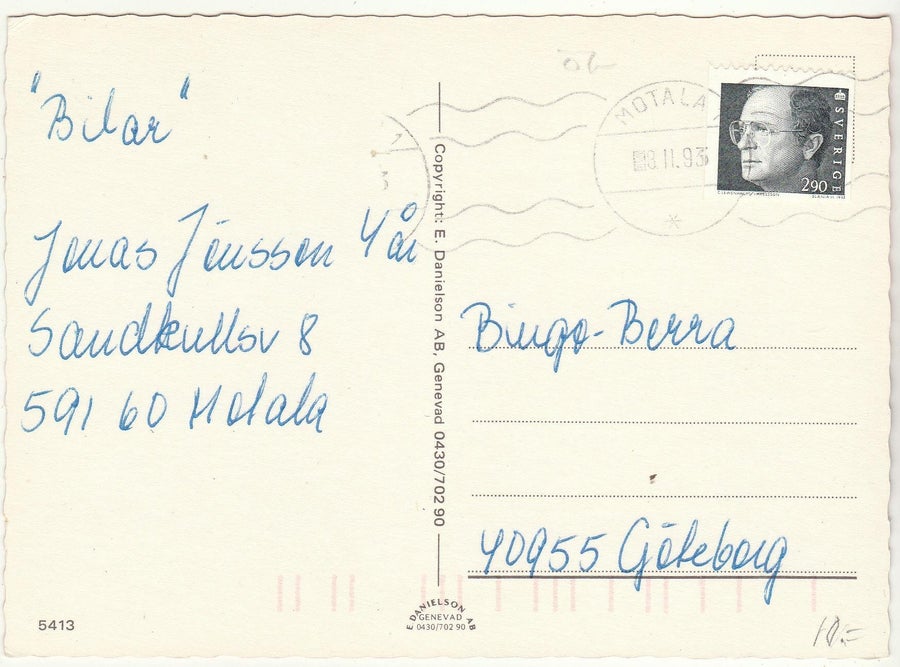 "Bilar"
Jonas Jönsson 4 år
Sandkullsv 8
591 60 Motala
5413
Copyright: E. Danielson AB, Genevad 0430/702 90
E DANIELSON AB
GENEVAD
0430/702 90
MOTALA
8.11.93
SVERIGE
290
Bingo-Berra
40955 Göteborg
10.=